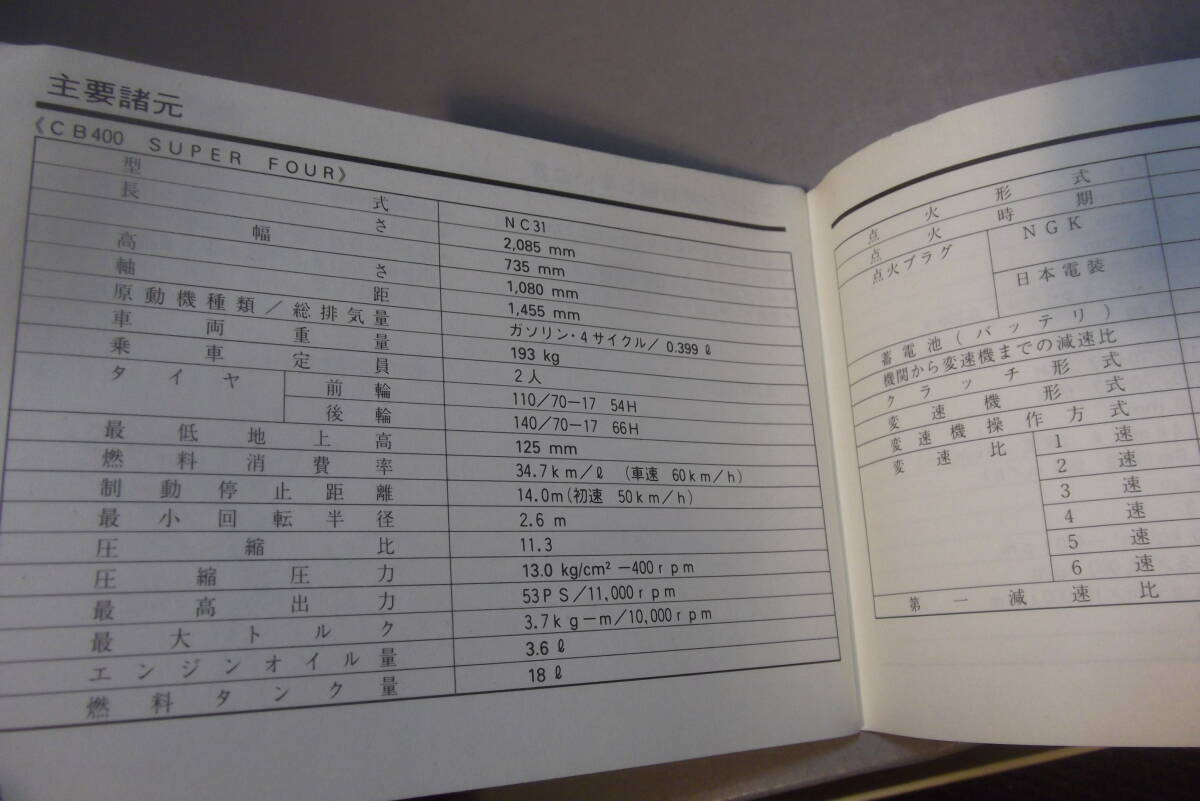 主要諸元
《CB400 SUPER FOUR》
型式 NC31
長さ 2,085 mm
幅 735 mm
高さ 1,080 mm
軸距 1,455 mm
原動機種類／総排気量 ガソリン・4サイクル／0.399ℓ
車両重量 193 kg
乗車定員 2人
タイヤ 前輪 110/70−17 54H
後輪 140/70−17 66H
最低地上高 125 mm
燃料消費率 34.7km/ℓ (車速 60km/h)
制動停止距離 14.0m(初速 50km/h)
最小回転半径 2.6 m
圧縮比 11.3
圧縮圧力 13.0 kg/cm² −400rpm
最高出力 53PS/11,000rpm
最大トルク 3.7kg−m/10,000rpm
エンジンオイル量 3.6ℓ
燃料タンク量 18ℓ
点火形式
点火時期
点火プラグ NGK
日本電装
蓄電池(バッテリ)
機関から変速機までの減速比
クラッチ形式
変速機形式
変速機操作方式
変速比 1速
2速
3速
4速
5速
6速
第一減速比